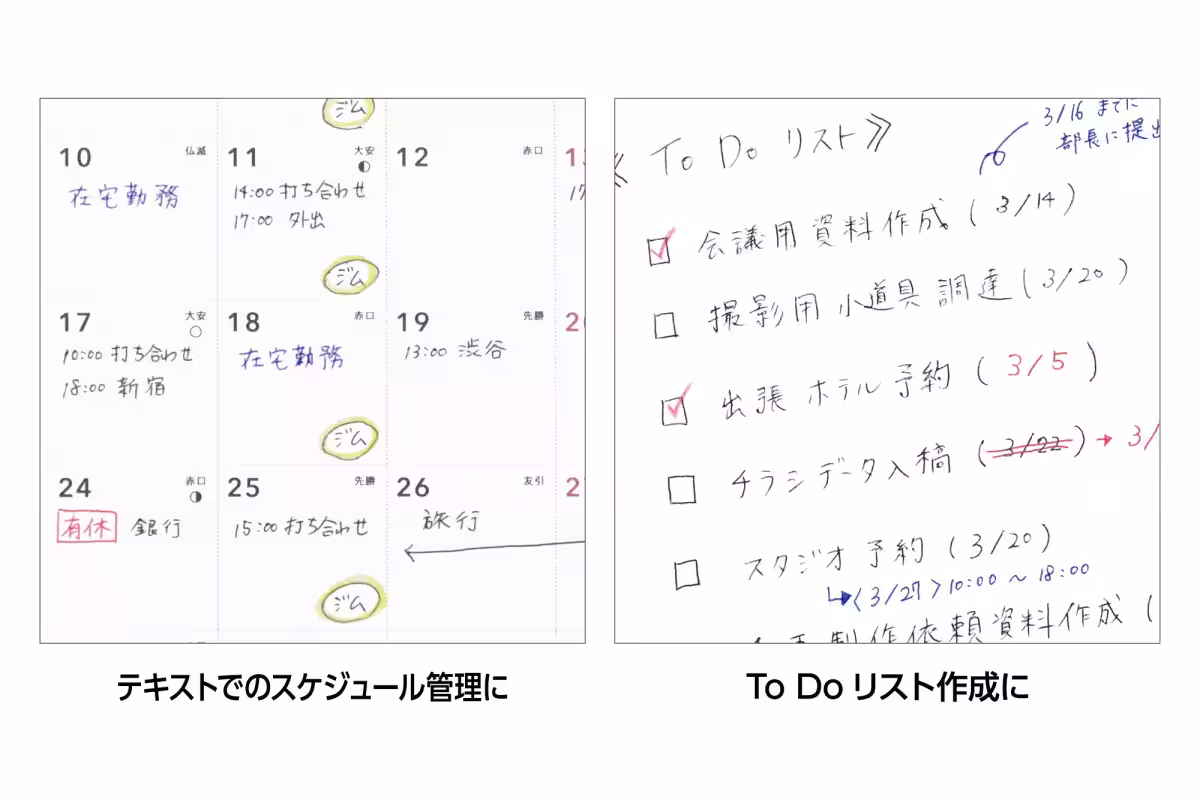 ジム
10 仏滅
在宅勤務
11 大安
14:00 打ち合わせ
17:00 外出
ジム
12 赤口
17 大安
10:00 打ち合わせ
18:00 新宿
18 赤口
在宅勤務
ジム
19 先勝
13:00 渋谷
24 赤口
有休 銀行
25 先勝
15:00 打ち合わせ
ジム
26 友引
旅行
テキストでのスケジュール管理に
《 To Do リスト 》
3/16 までに
部長に提出
会議用資料作成 (3/14)
撮影用小道具調達 (3/20)
出張ホテル予約 (3/5)
チラシデータ入稿 (3/22) → 3/
スタジオ予約 (3/20)
↳〈3/27〉10:00 ~ 18:00
制作依頼資料作成 (
To Do リスト作成に